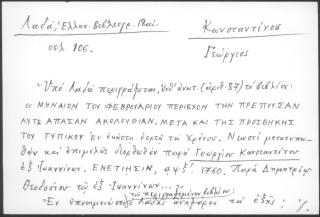 Λαδᾶ, Ἑλλην. Βιβλιογρ. 18αι.
Κωνσταντίνου
σελ. 106.
Γεώργιος
Ὑπὸ Λαδᾶ περιγράφεται, ὑπ' ἀριθ. 87) τὸ βιβλίον:
α ΜΗΝΑΙΟΝ ΤΟΥ ΦΕΒΡΟΥΑΡΙΟΥ ΠΕΡΙΕΧΟΝ ΤΗΝ ΠΡΕΠΟΥΣΑΝ
ΑΥΤΩ ΑΠΑΣΑΝ ΑΚΟΛΟΥΘΙΑΝ, ΜΕΤΑ ΚΑΙ ΤΗΣ ΠΡΟΣΘΗΚΗΣ
ΤΟΥ ΤΥΠΙΚΟΥ Ἐν ἑκάστῃ ἑορτῇ τοῦ Χρόνου. Νεωστὶ μετατυπω-
θὲν καὶ ἐπιμελῶς διορθωθὲν παρὰ Γεωργίου Κωνσταντίνου
ἐξ Ἰωαννίνων. ΕΝΕΤΙΗΣΙΝ, αψξ΄. 1760. Παρὰ Δημητρίῳ
Θεοδοσίου τῷ ἐξ Ἰωαννίνων...
τὸ περιγραφόμενον βιβλίον
Ἐν ὑποσημειώσει Λαδᾶς ἀναφέρει τὰ ἑξῆς: ·/.